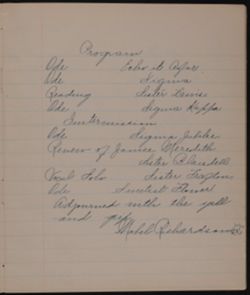 Program
Ode Echo it Afar.
Ode Sigma
Reading Sister Lewis
Ode Sigma Kappa
Intermission
Ode Sigma Jubilee
Review of Janice Meredith
Sister Blaisdell
Vocal Solo Sister
Ode Sweetest Flower
Adjourned with the yell
and grip.
Mabel Richardson